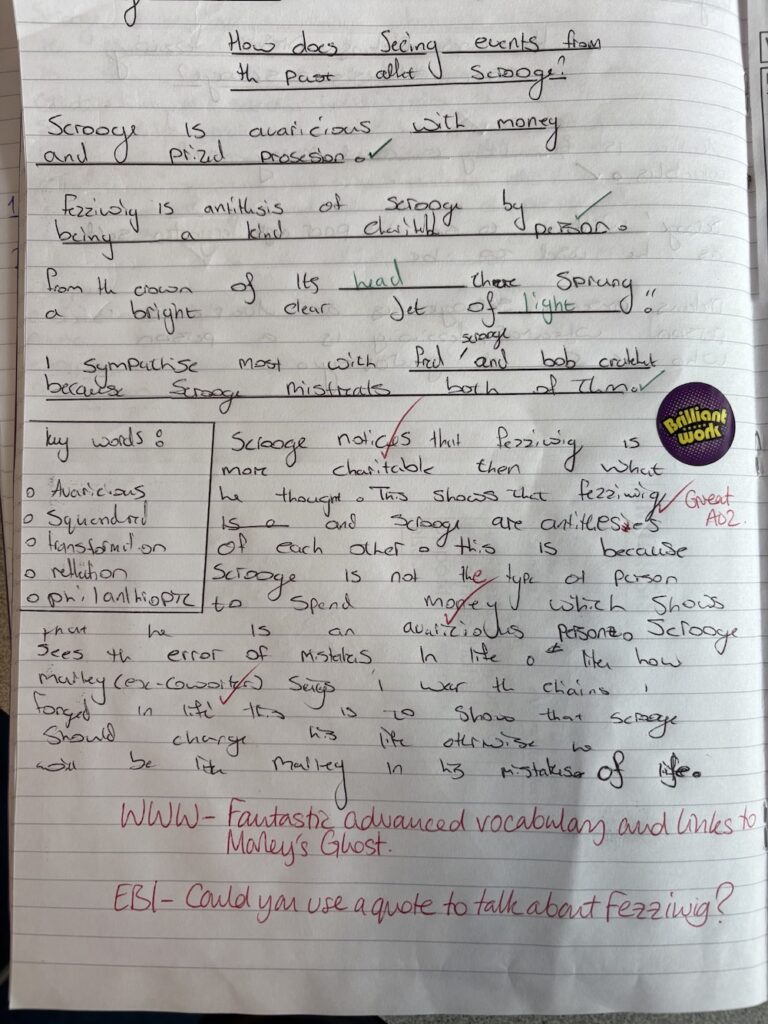 How does Seeing events from
th past affet Scrooge?
Scrooge is avaricious with money
and prized prosesion.
fezziwig is antithsis of scrooge by
being a kind charitbl person.
from th crown of its head there sprung
a bright clear jet of light".
scrooge
I sympathise most with fred and bob cratchet
because Scrooge mistreats both of Them.
Brilliant work
key words:
Avaricious
Squandred
transformation
refletion
philanthropic
Scrooge notices that fezziwig is
more charitable then what
he thought. This shows that fezziwig
is a and scrooge are antitheses
Great AO2.
of each other. this is because
Scrooge is not the type of person
to spend money which shows
that he is an avaricious person. Scrooge
Sees th error of mistakes in life. like how
marley (ex-coworker) Says 'i war th chains i
forged in life' this is to show that scrooge
Should change his life otherwise he
would be like marley in his mistakes of life.
WWW- Fantastic advanced vocabulary and links to
Marley's Ghost.
EBI- Could you use a quote to talk about Fezziwig?